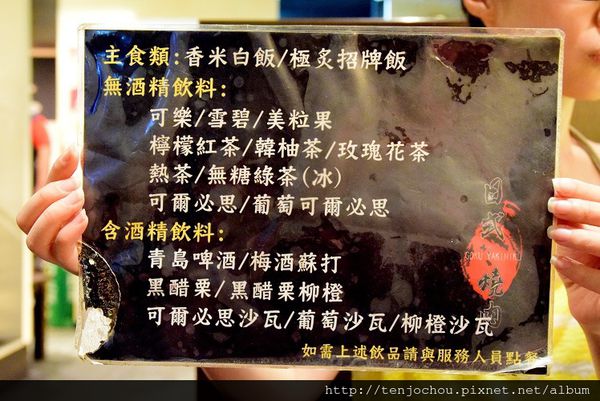 主食類:香米白飯/極炙招牌飯
無酒精飲料:
可樂/雪碧/美粒果
檸檬紅茶/韓柚茶/玫瑰花茶
熱茶/無糖綠茶(冰)
可爾必思/葡萄可爾必思
含酒精飲料:
青島啤酒/梅酒蘇打
黑醋栗/黑醋栗柳橙
可爾必思沙瓦/葡萄沙瓦/柳橙沙瓦
如需上述飲品請與服務人員點餐
日式燒肉
GOKU YAKINIKU
http://tenjochou.pixnet.net/album